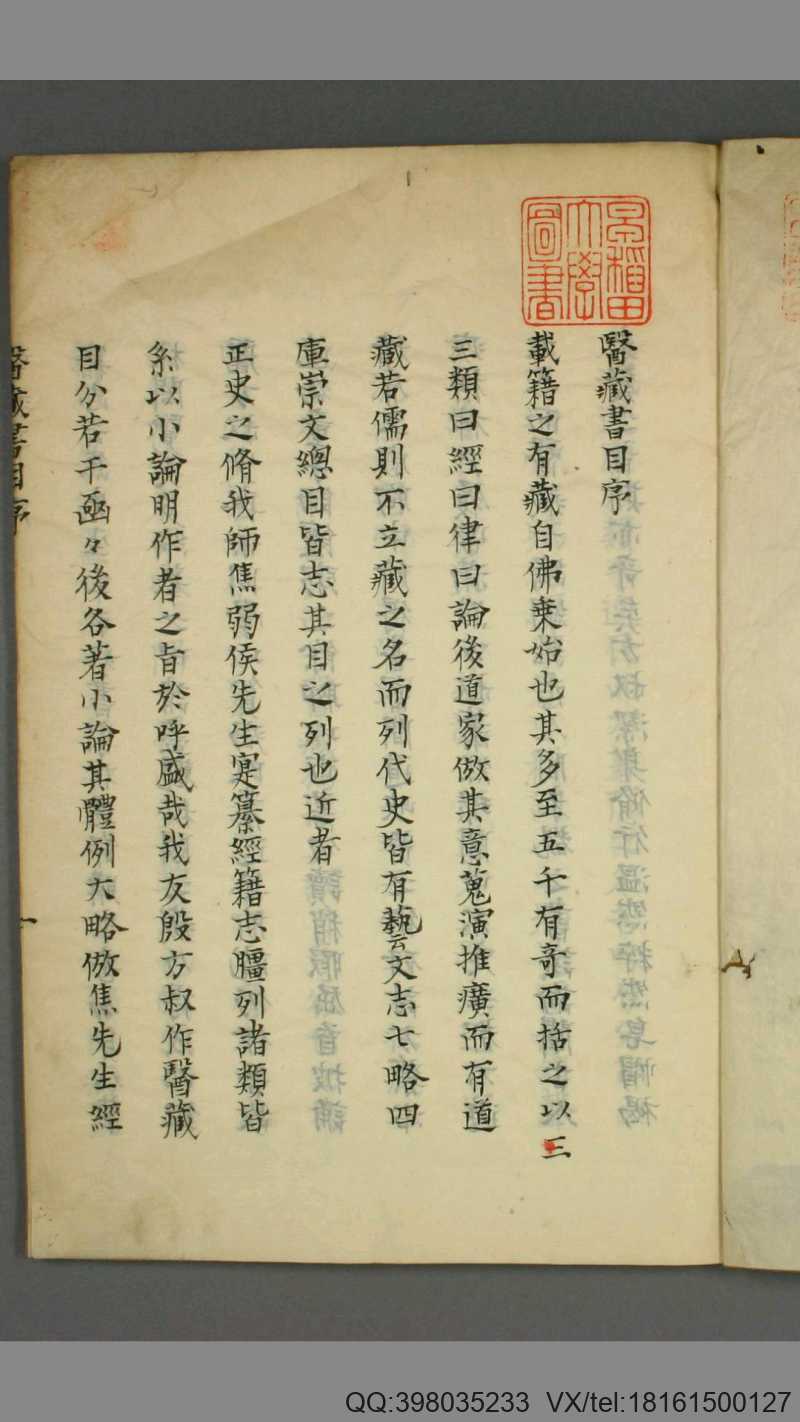 醫藏書目序
載籍之有藏自佛乗始也其多至五千有奇而括之以三
三類曰經曰律曰論後道家倣其意蒐演推癀而有道
藏若儒則不立藏之名而列代史皆有藝文志七略四
庫崇文總目皆志其目之列也近者
正史之脩我師焦弱侯先生寔纂經籍志臚列諸類皆
系以小論明作者之旨於呼盛哉我友殷方叔作醫藏
目分若干凾々後各著小論其體例大略倣焦先生經
醫藏書目序
一
早稲田大學圖書
QQ:398035233 VX/tel:18161500127